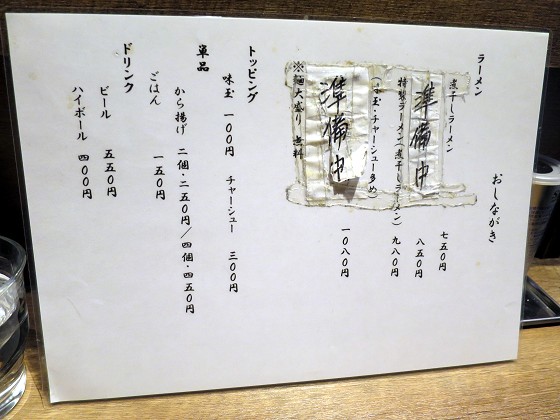 おしながき
ラーメン
煮干しラーメン 七五〇円
準備中 八五〇円
特製ラーメン(煮干しラーメン) 九八〇円
(味玉・チャーシュー多め)
準備中 一〇八〇円
※麺大盛り 無料
トッピング
味玉 一〇〇円 チャーシュー 三〇〇円
単品
から揚げ 二個・二五〇円/四個・四五〇円
ごはん 一五〇円
ドリンク
ビール 五五〇円
ハイボール 四〇〇円